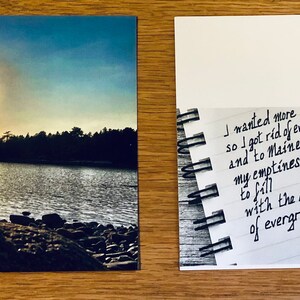 I wanted more
so I got rid of
and to Maine
my emptiness
to fill
with the
of evergr